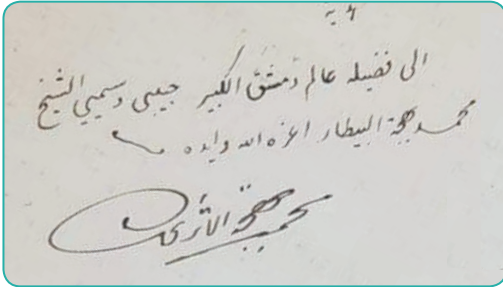 هدية
الى فضيلة عالم دمشق الكبير حبيبي وسميي الشيخ
محمد بهجة البيطار اعزه الله وايده
محمد بهجة الأثري